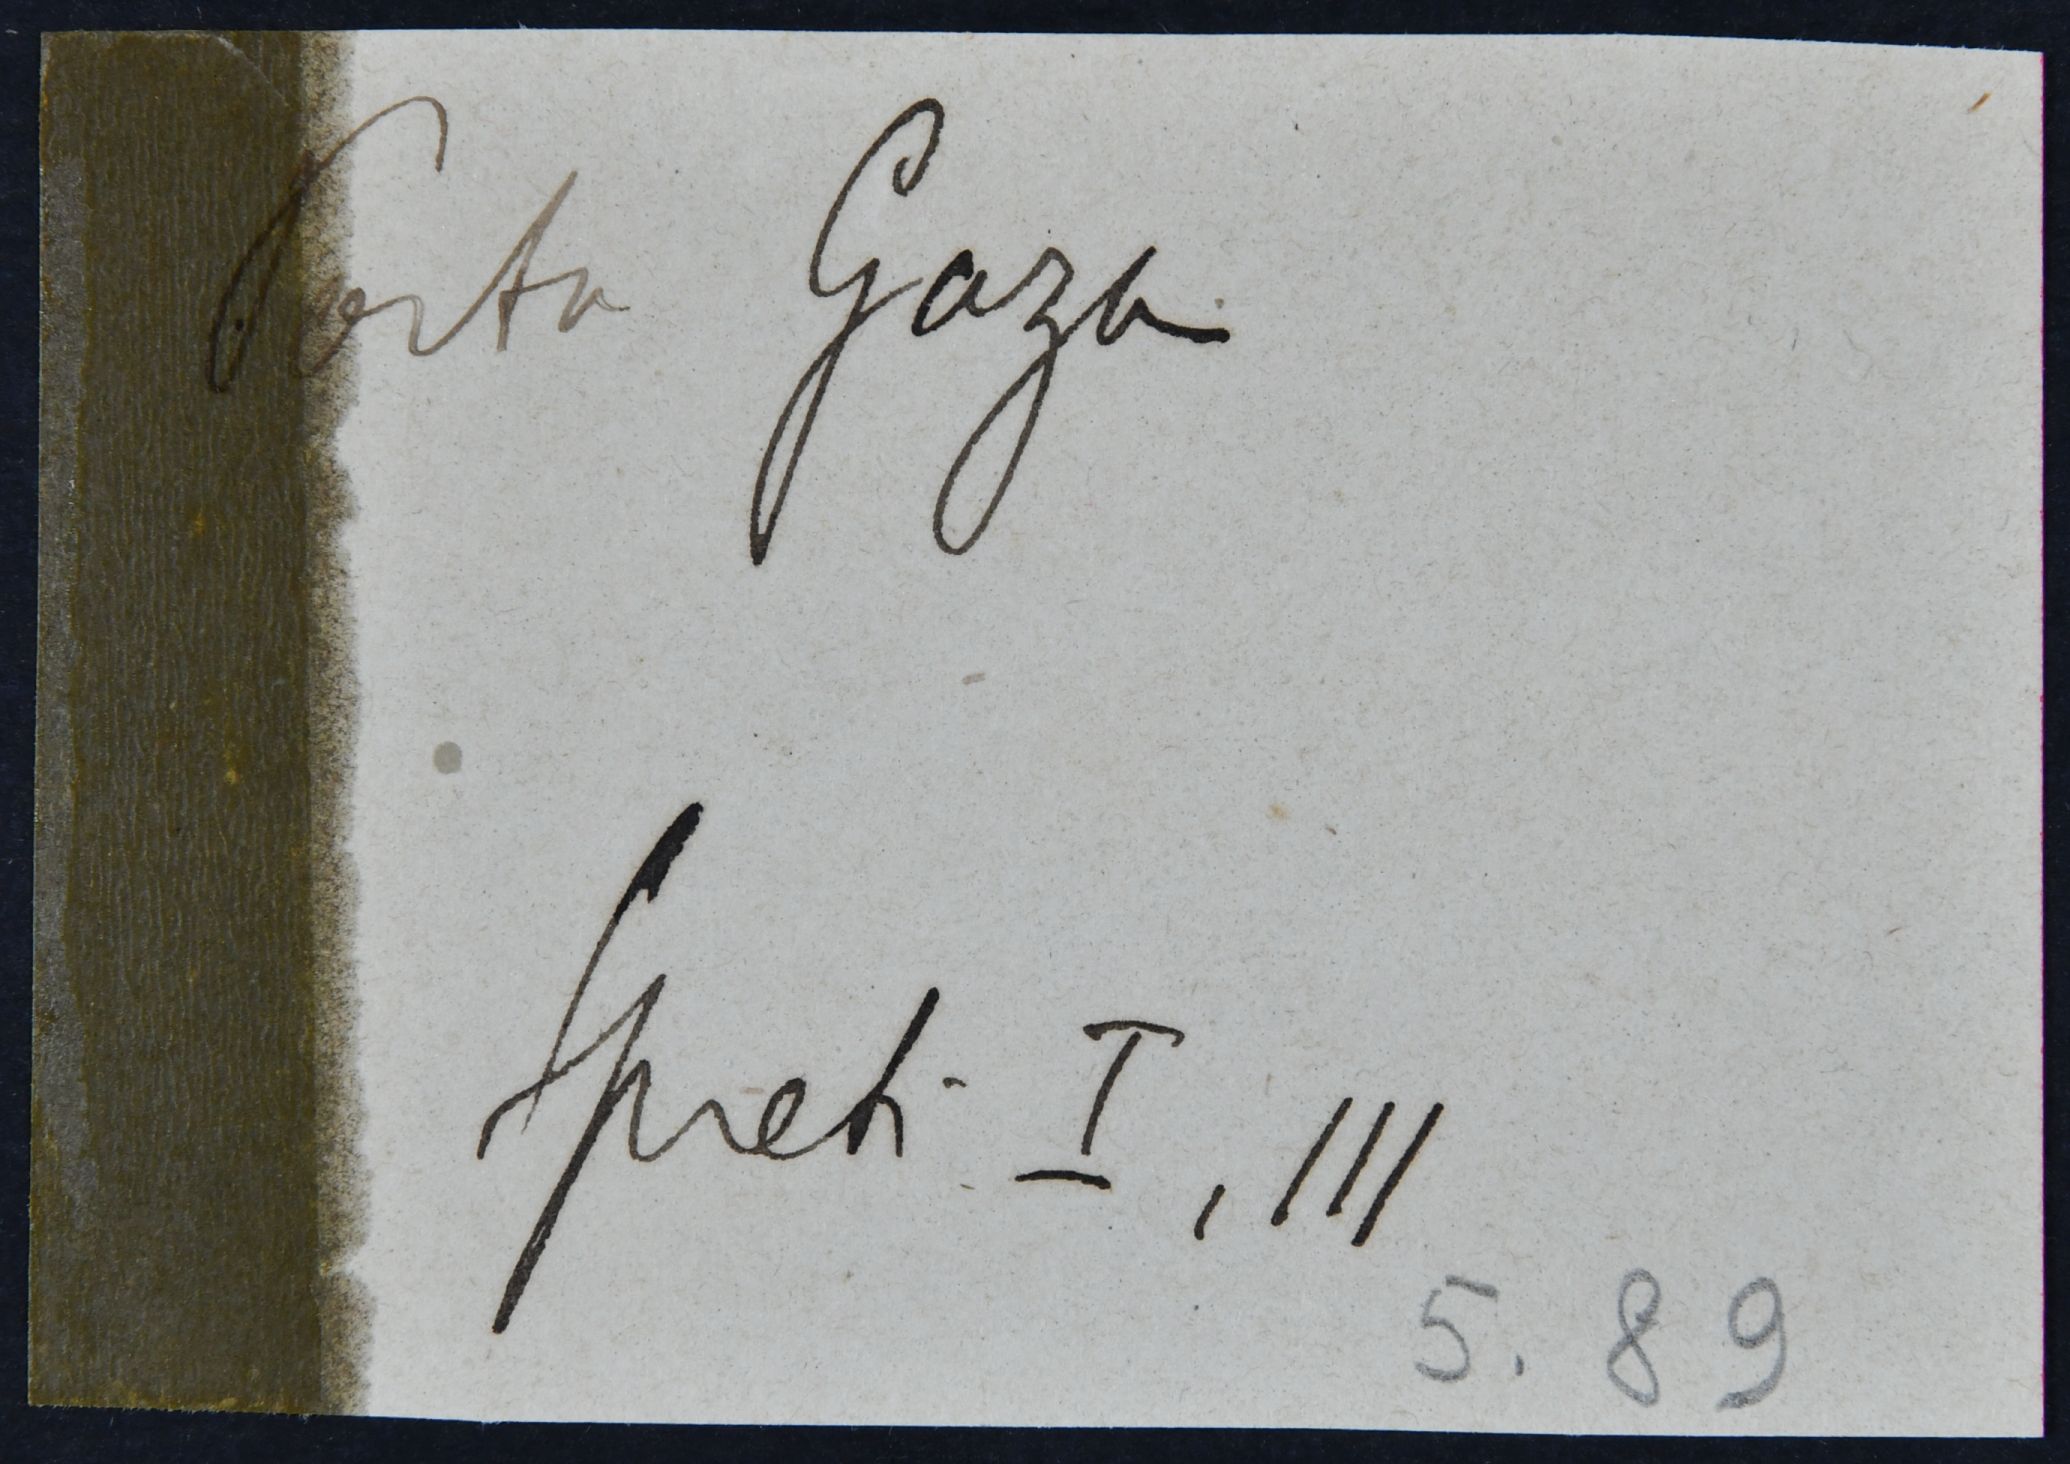 Porta Gaza
Spreti I, III
5. 89